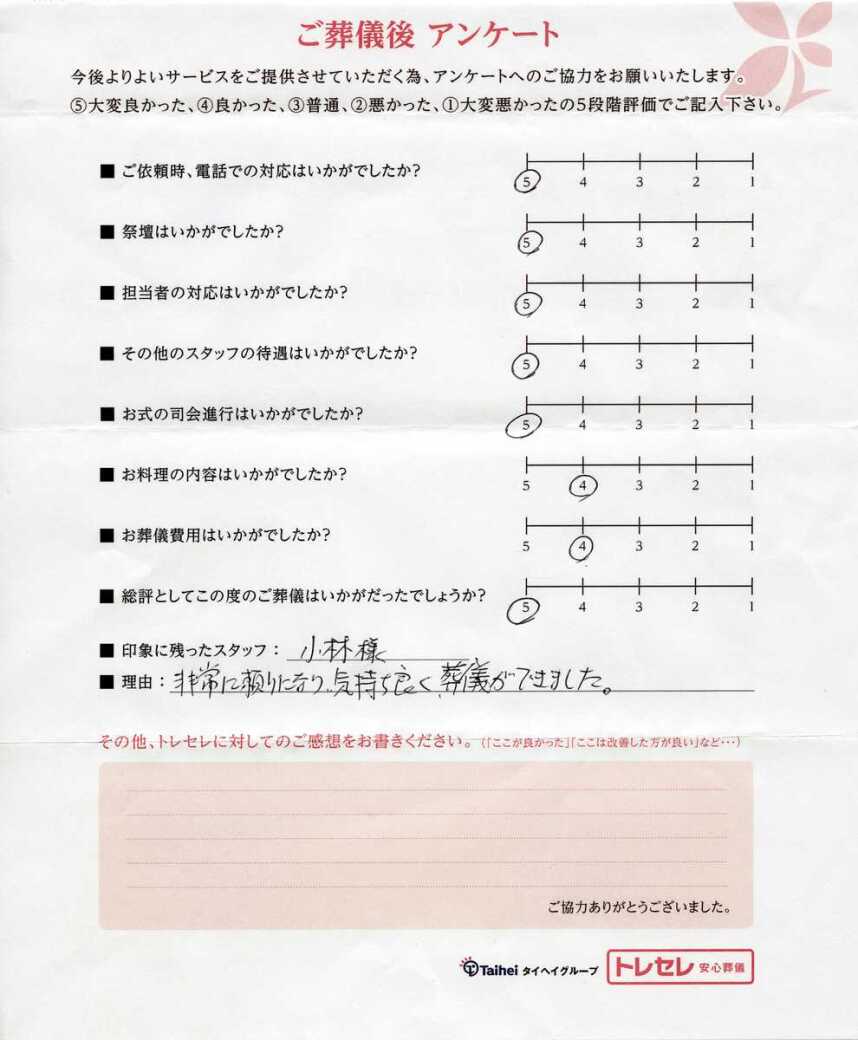 ご葬儀後 アンケート
今後よりよいサービスをご提供させていただく為、アンケートへのご協力をお願いいたします。
⑤大変良かった、④良かった、③普通、②悪かった、①大変悪かったの5段階評価でご記入下さい。
■ ご依頼時、電話での対応はいかがでしたか?
5 4 3 2 1
■ 祭壇はいかがでしたか?
5 4 3 2 1
■ 担当者の対応はいかがでしたか?
5 4 3 2 1
■ その他のスタッフの待遇はいかがでしたか?
5 4 3 2 1
■ お式の司会進行はいかがでしたか?
5 4 3 2 1
■ お料理の内容はいかがでしたか?
5 4 3 2 1
■ お葬儀費用はいかがでしたか?
5 4 3 2 1
■ 総評としてこの度のご葬儀はいかがだったでしょうか?
5 4 3 2 1
■ 印象に残ったスタッフ: 小林様
■ 理由: 非常に頼りになり、気持ち良く葬儀ができました。
その他、トレセレに対してのご感想をお書きください。(「ここが良かった」「ここは改善した方が良い」など…)
ご協力ありがとうございました。
Taihei タイヘイグループ トレセレ 安心葬儀